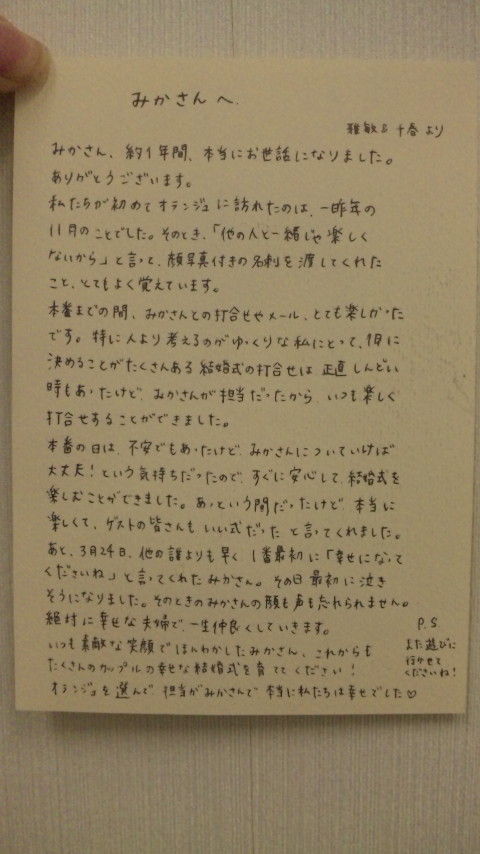 みかさんへ.
雅敏&千春より
みかさん、約1年間、本当にお世話になりました。
ありがとうございます。
私たちが初めてオランジュに訪れたのは、一昨年の
11月のことでした。そのとき、「他の人と一緒じゃ楽しく
ないから」と言って、顔写真付きの名刺を渡してくれた
こと、とてもよく覚えています。
本番までの間、みかさんとの打合せやメール、とても楽しかった
です。特に人より考えるのがゆっくりな私にとって、1月に
決めることがたくさんある結婚式の打合せは正直しんどい
時もあったけど、みかさんが担当だったから、いつも楽しく
打合せすることができました。
本番の日は、不安でもあったけど、みかさんについていけば
大丈夫!という気持ちだったので、すぐに安心して、結婚式を
楽しむことができました。あっという間だったけど、本当に
楽しくて、ゲストの皆さんもいい式だったと言ってくれました。
あと、3月24日、他の誰よりも早く1番最初に「幸せになって
くださいね」と言ってくれたみかさん。その日最初に泣き
そうになりました。そのときのみかさんの顔も声も忘れられません。
絶対に幸せな夫婦で、一生仲良くしていきます。
いつも素敵な笑顔でほんわかしたみかさん、これからも
たくさんのカップルの幸せな結婚式を育ててください!
オランジュを選んで、担当がみかさんで本当に私たちは幸せでした♡
P.S
また遊びに
行かせて
くださいね!